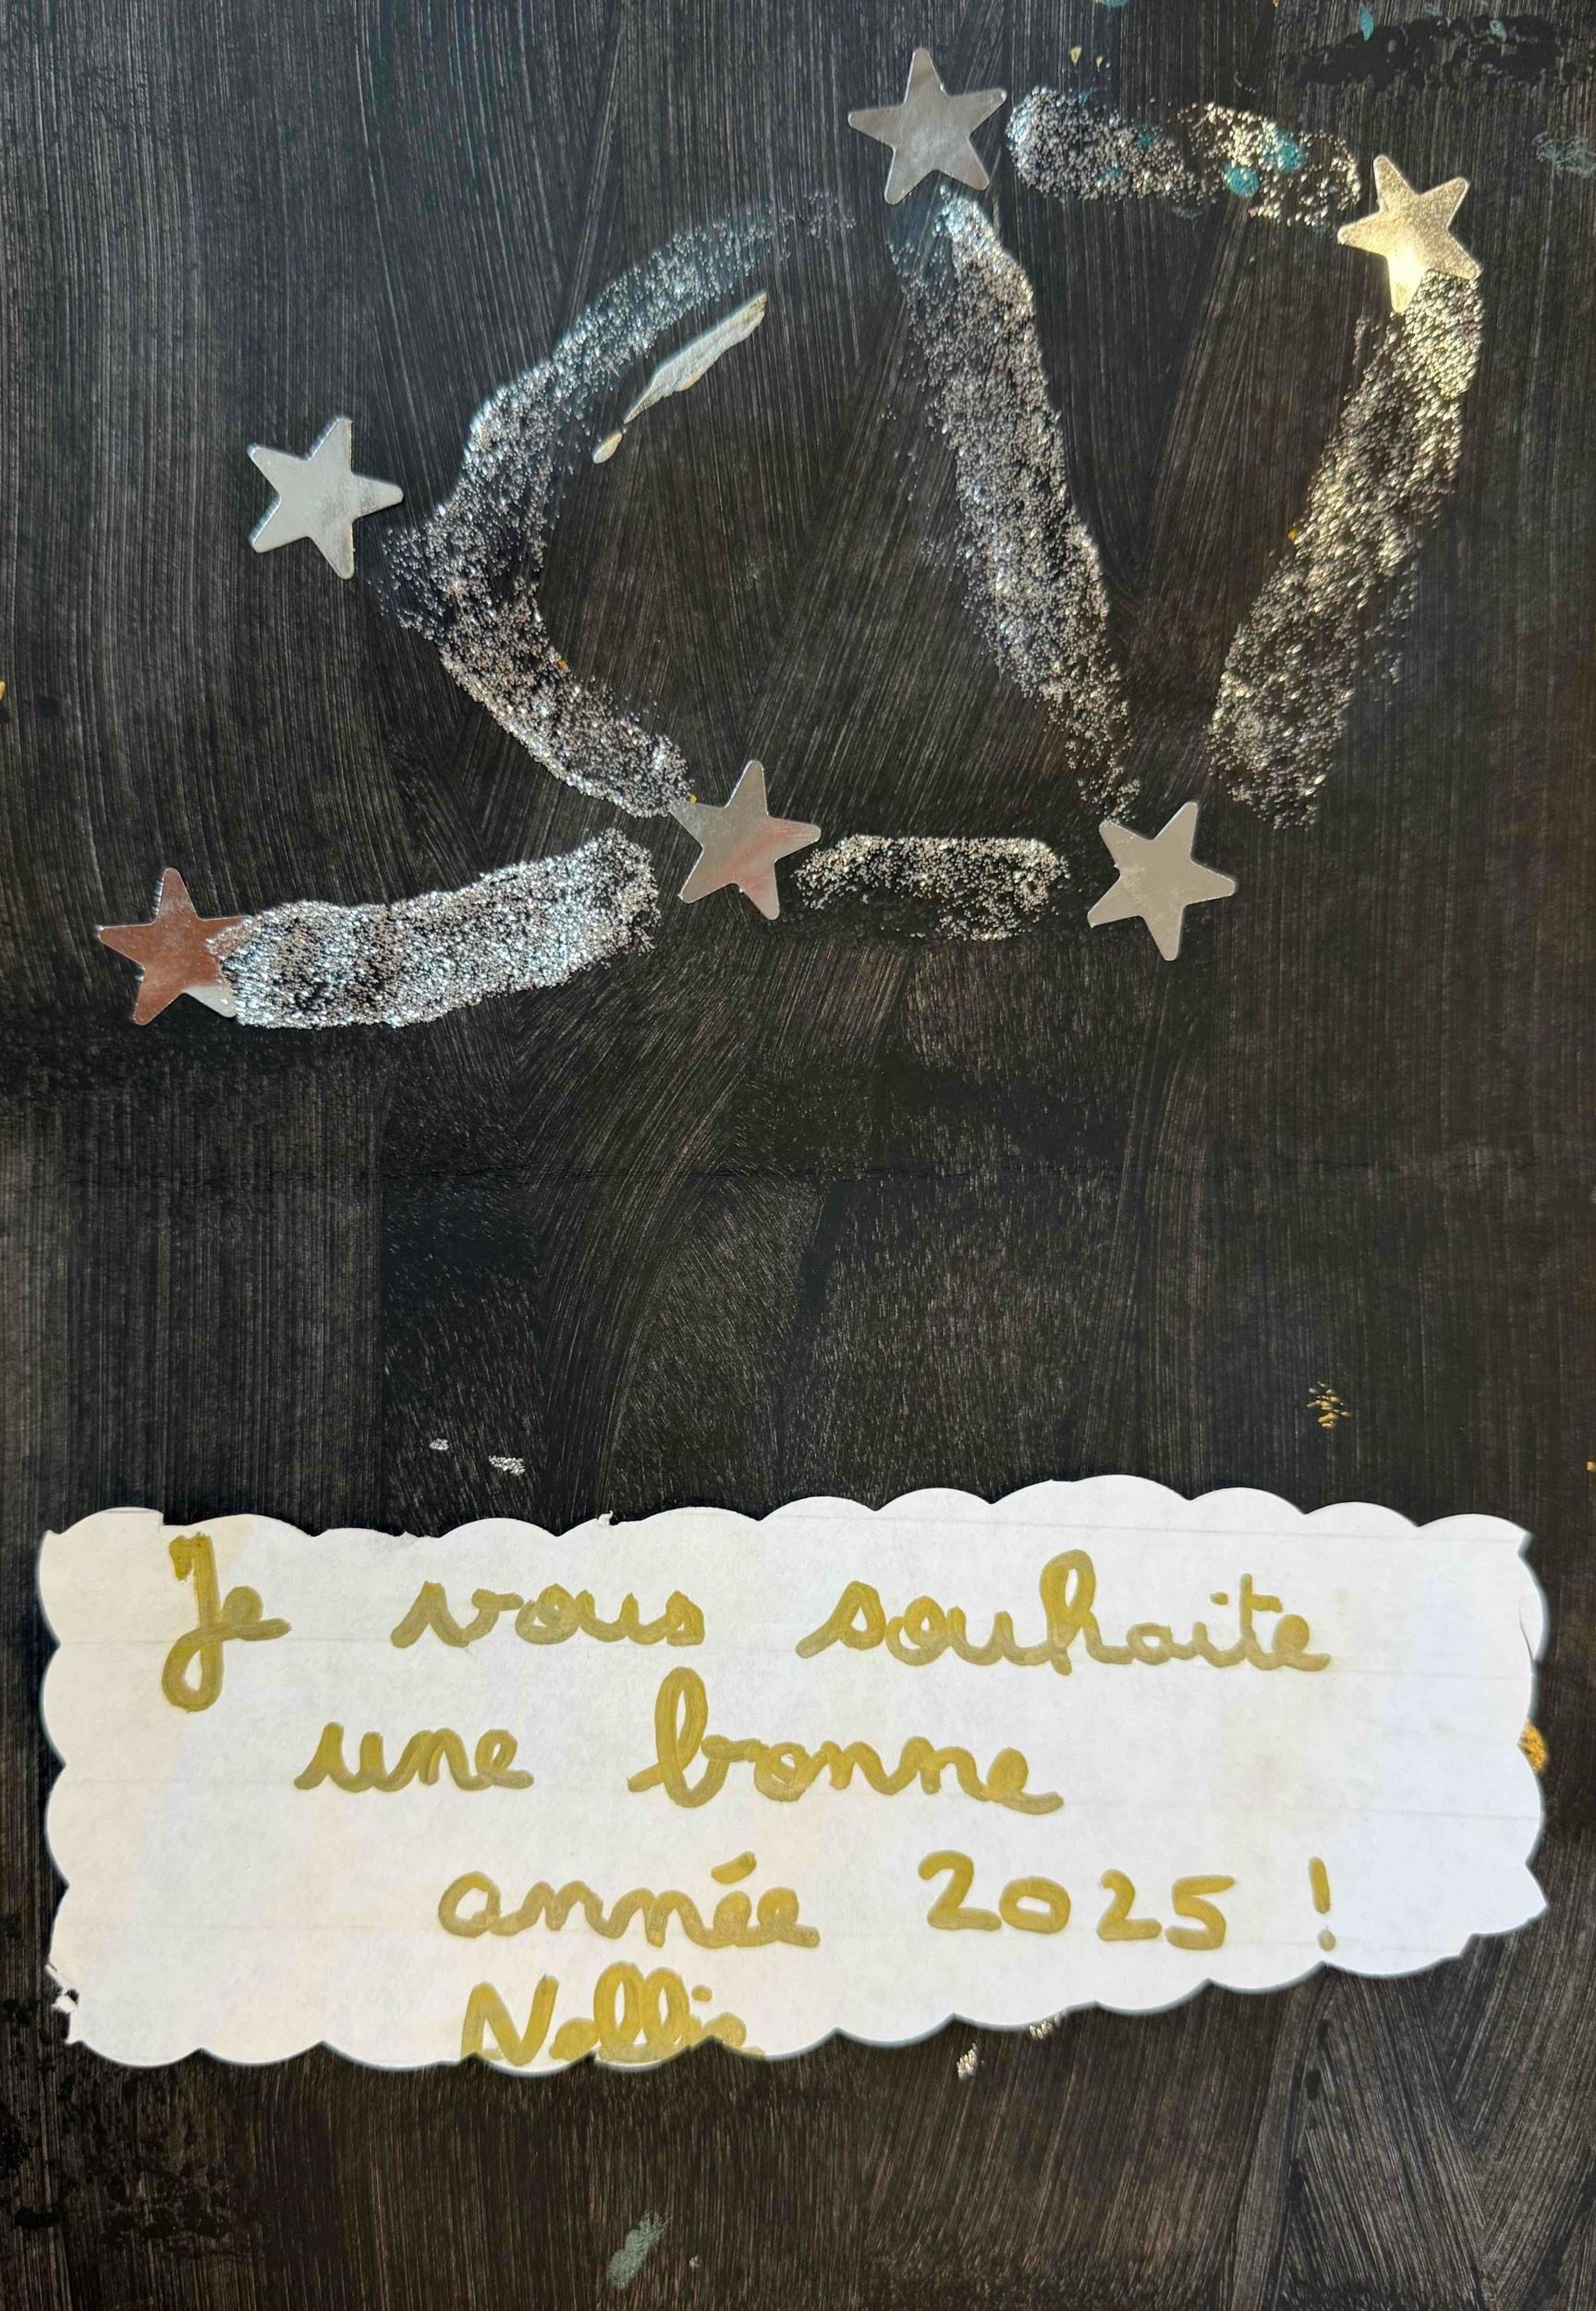 Je vous souhaite
une bonne
année 2025 !
Nellie